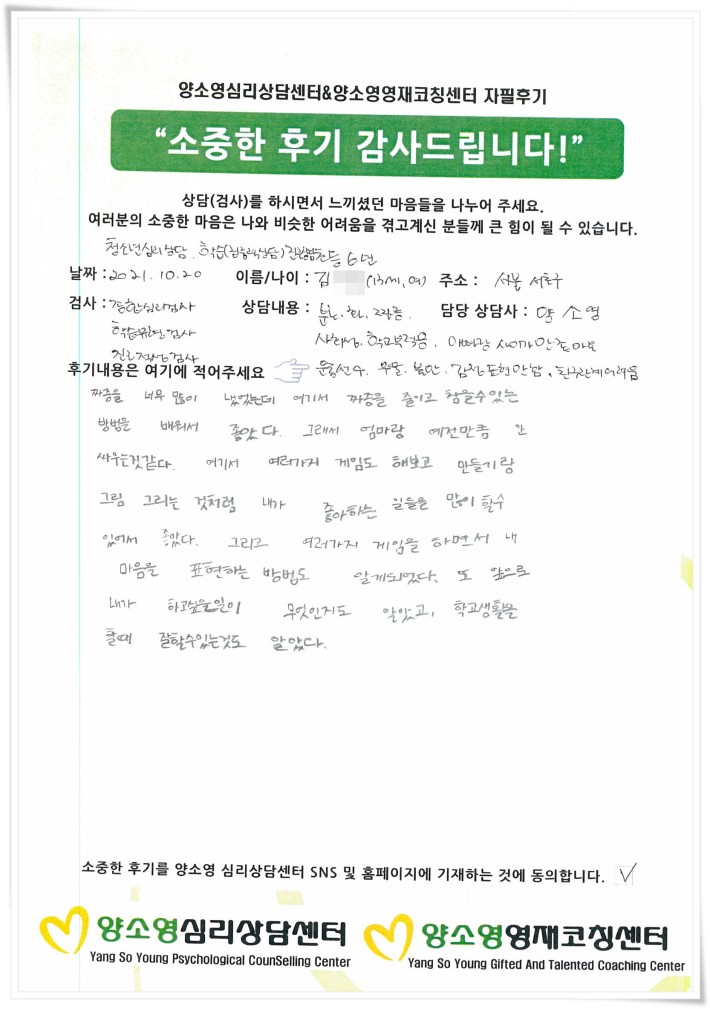 양소영심리상담센터&양소영영재코칭센터 자필후기
“소중한 후기 감사드립니다!”
상담(검사)를 하시면서 느끼셨던 마음들을 나누어 주세요.
여러분의 소중한 마음은 나와 비슷한 어려움을 겪고계신 분들께 큰 힘이 될 수 있습니다.
청소년심리상담, 학습(집중력상담) 초등6년
날짜 : 2021.10.20 이름/나이 : 김 (13세, 여) 주소 : 서울 서초구
검사 : 종합심리검사 상담내용 : 분노, 화, 짜증 담당 상담사 : 양소영
학습유형검사 사회성, 학교부적응,
진로적성검사
후기내용은 여기에 적어주세요 우울, 불안, 감정표현안함, 친구관계어려움
짜증을 너무 많이 냈었는데 여기서 짜증을 줄이고 참을수있는
방법을 배워서 좋았다. 그래서 엄마랑 예전만큼 안
싸우는것같다. 여기서 여러가지 게임도 해보고 만들기랑
그림 그리는 것처럼 내가 좋아하는 일들을 많이 할수
있어서 좋았다. 그리고 여러가지 게임을 하면서 내
마음을 표현하는 방법도 알게되었다. 또 앞으로
내가 하고싶은일이 무엇인지도 알았고, 학교생활을
할때 잘할수있는것도 알았다.
소중한 후기를 양소영 심리상담센터 SNS 및 홈페이지에 기재하는 것에 동의합니다. ✓
양소영심리상담센터 양소영영재코칭센터
Yang So Young Psychological CounSelling Center Yang So Young Gifted And Talented Coaching Center